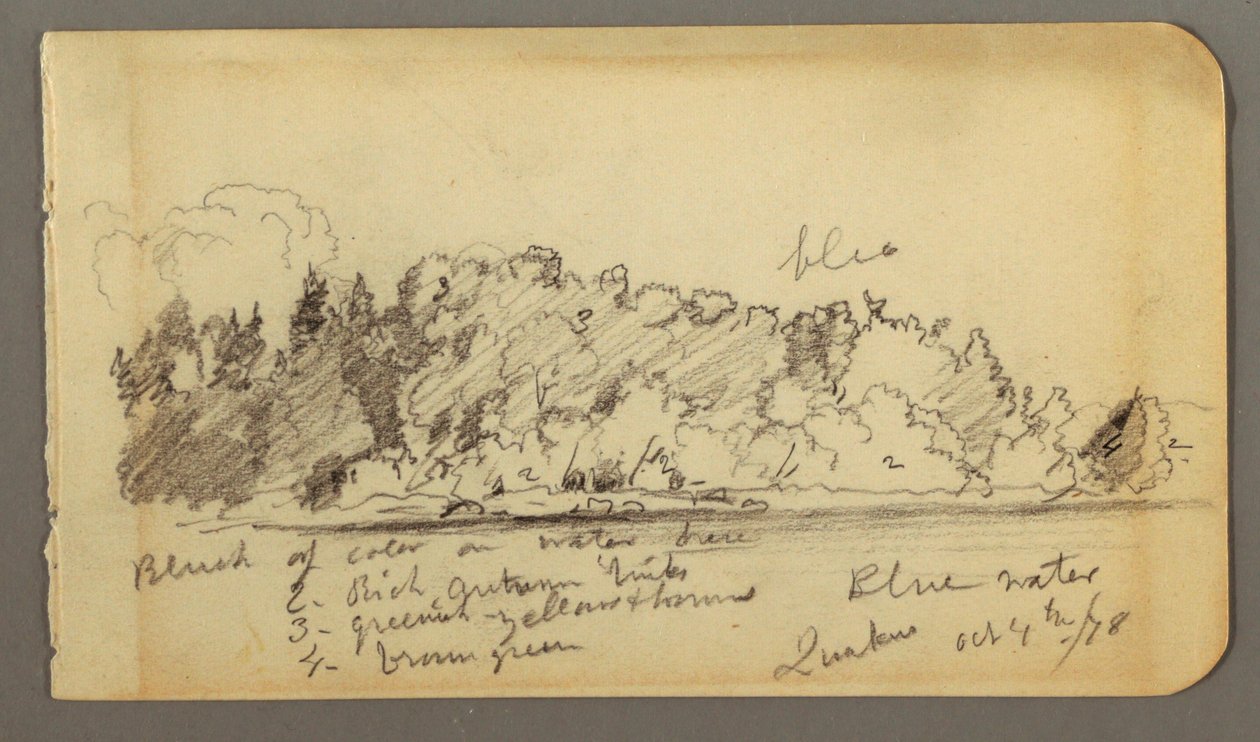 blue
3
3
2
2
2
4
2
Blush of color on water here
2- Rich Autumn Tints
3- greenish-yellow & brown
4- brown green
Blue water
oct 4th/78